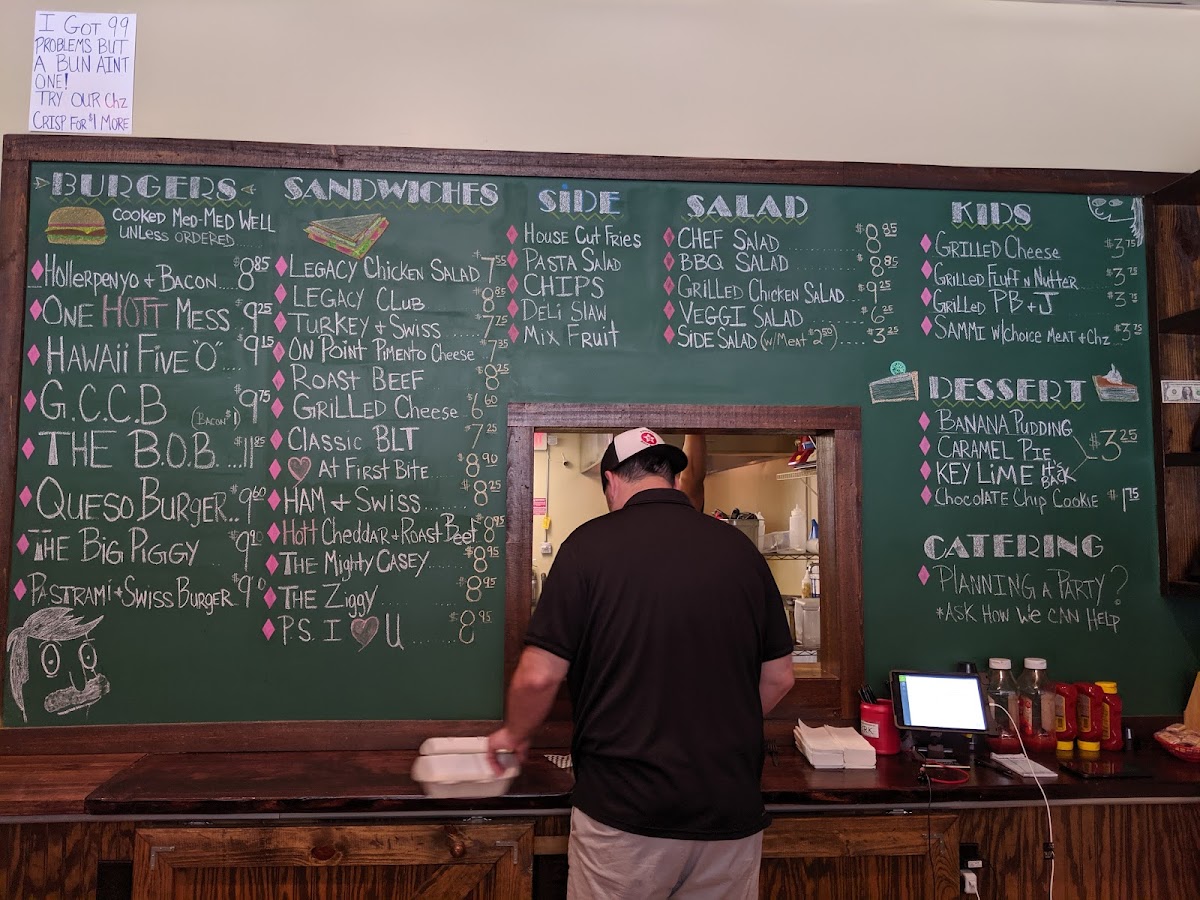 I GOT 99
PROBLEMS BUT
A BUN AINT
ONE!
TRY OUR Chz
CRISP FOR $1 MORE
BURGERS
COOKED MED-MED WELL
UNLESS ORDERED
HOLLERPENYO + BACON $8.85
ONE HOTT MESS $9.25
HAWAII FIVE "O" $9.15
G.C.C.B (BACON $1) $9.75
THE B.O.B. $11.85
QUESO BURGER $9.60
THE BIG PIGGY
PASTRAMI + SWISS BURGER
SANDWICHES
LEGACY CHICKEN SALAD $7.55
LEGACY CLUB $8.85
TURKEY + SWISS $7.75
ON POINT PIMENTO CHEESE $7.35
ROAST BEEF $8.25
GRILLED CHEESE $6.60
CLASSIC BLT $7.25
AT FIRST BITE $8.90
HAM + SWISS $8.25
HOTT CHEDDAR + ROAST BEEF $8.95
THE MIGHTY CASEY $8.95
THE ZIGGY $8.95
P.S. I U $8.95
SIDE
HOUSE CUT FRIES
PASTA SALAD
CHIPS
DELI SLAW
MIX FRUIT
SALAD
CHEF SALAD $8.85
BBQ SALAD $8.85
GRILLED CHICKEN SALAD $9.25
VEGGI SALAD $6.25
SIDE SALAD (W/MEAT $2.50) $3.25
KIDS
GRILLED CHEESE $3.75
GRILLED FLUFF N NUTTER $3.75
GRILLED PB + J $3.75
SAMMI W/CHOICE MEAT + CHZ $3.75
DESSERT
BANANA PUDDING
CARAMEL PIE $3.25
KEY LIME IT'S BACK
CHOCOLATE CHIP COOKIE $1.75
CATERING
PLANNING A PARTY?
*ASK HOW WE CAN HELP